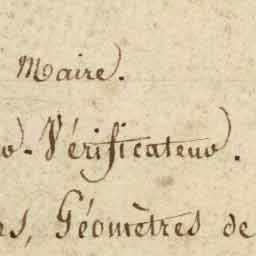 Maire.
-Vérificateur.
es, Géomètres de